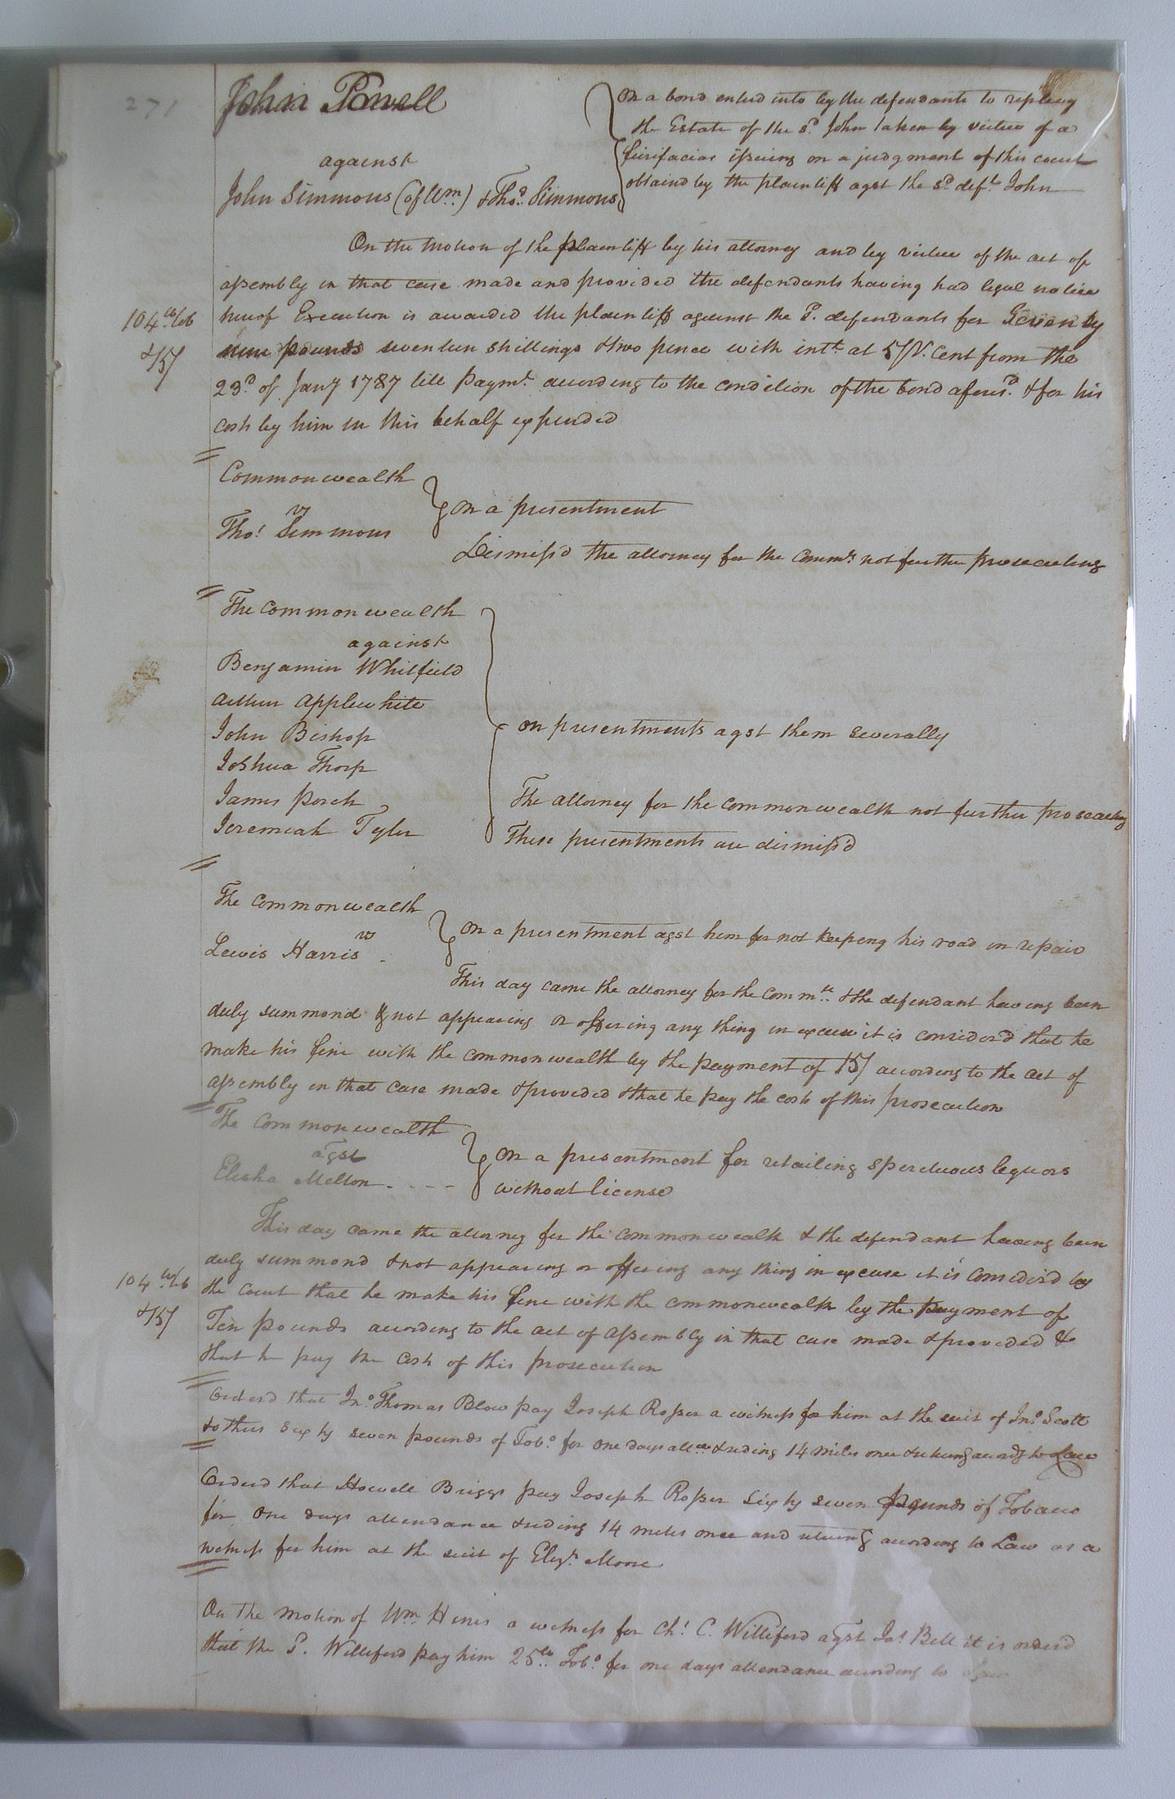 271
John Powell
against
John Simmons (of Wm.) & Thos. Simmons
On a bond enterd into by the defendants to replevy
the Estate of the sd. John taken by virtue of a
fierifacias issuing on a judgment of this court
obtaind by the plaintiff agst the sd. deft. John
On the motion of the plaintiff by his attorney and by virtue of the act of
assembly in that case made and provided the defendants having had legal notice
hereof Execution is awarded the plaintiff against the sd. defendants for Seventy
nine pounds seventeen shillings & two pence with intt. at 5 P. Cent from the
104 lb Tob
& 15/
23d. of Jany 1787 till paymt. according to the condition of the bond aforesd. & for his
costs by him in this behalf expended
Commonwealth
vs
Thos. Simmons
On a presentment
Dismiss'd the attorney for the Commth. not further prosecuting
The Commonwealth
against
Benjamin Whitfield
Arthur Applewhite
John Bishop
Joshua Thorp
James Porch
Jeremiah Tyler
On presentments agst them severally
The attorney for the commonwealth not further prosecuting
These presentments are dismiss'd
The Commonwealth
vs
Lewis Harris
On a presentment agst him for not keeping his road in repair
This day came the attorney for the Commth. & the defendant having been
duly summond & not appearing or offering any thing in excuse it is considerd that he
make his fine with the commonwealth by the payment of 15/ according to the act of
assembly in that case made & provided & that he pay the costs of this prosecution
The Commonwealth
agst
Elisha Melton
On a presentment for retailing sperctuous liquors
without license
This day came the attorney for the commonwealth & the defendant having been
duly summond & not appearing or offering any thing in excuse it is considerd by
104 lb Tob
& 15/
the Court that he make his fine with the commonwealth by the payment of
Ten pounds according to the act of assembly in that case made & provided &
that he pay the costs of this prosecution
Orderd that Jno. Thomas Blow pay Joseph Rosser a witness for him at the suit of Jno. Scott
& others Sixty seven pounds of Tobo. for one days attce & riding 14 miles once & returng accordg to Law
Orderd that Howell Briggs pay Joseph Rosser Sixty seven pounds of Tobacco
for One days attendance & riding 14 miles once and returng according to Law as a
witness for him at the suit of Elizh. Moore
On the motion of Wm. Hines a witness for Chs. C. Williford agst Jas. Bell it is orderd
that the sd. Williford pay him 25 lb Tobo. for one days attendance according to Law